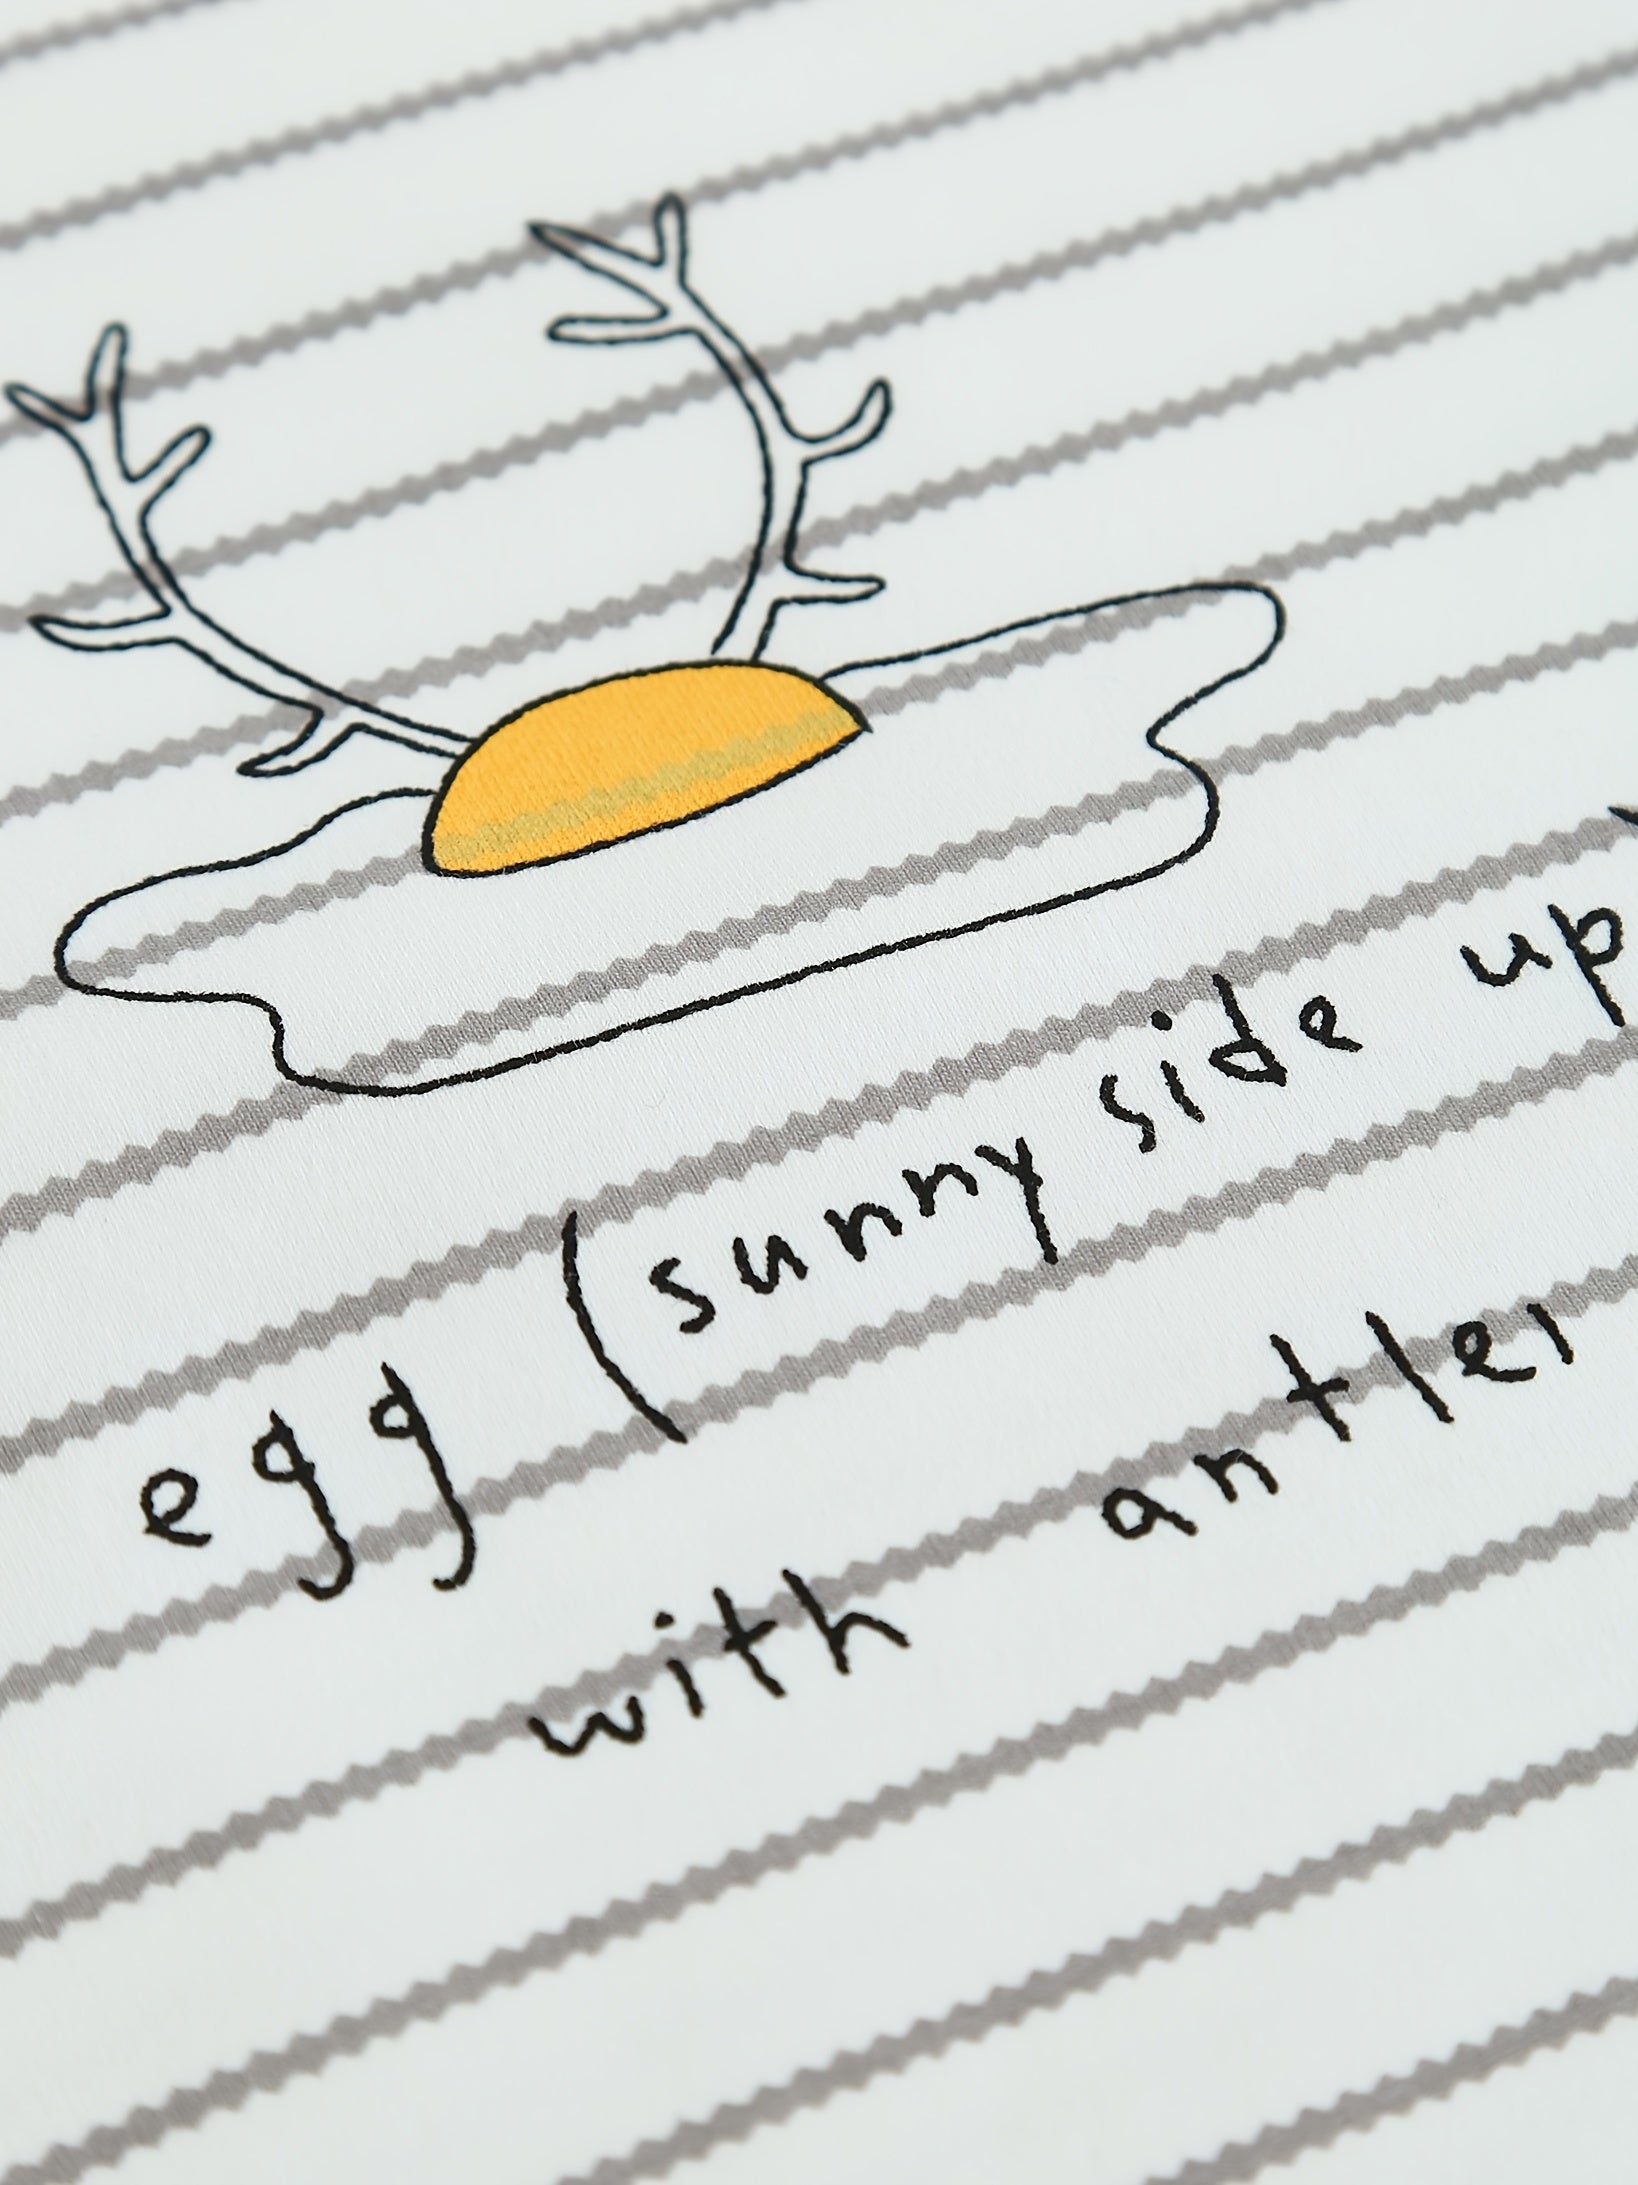 egg (sunny side up
with antler